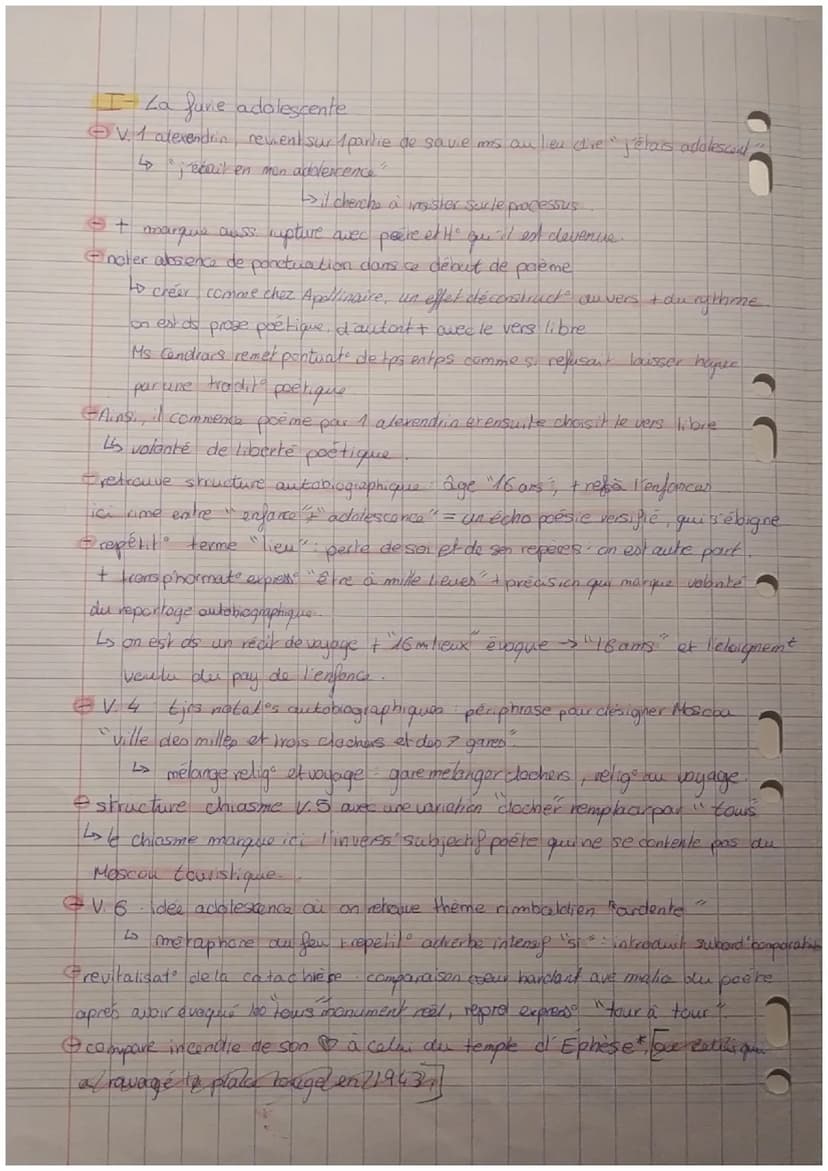 I- La furie adolescente
- V.1 alexendrin, revient sur 1 partie de sa vie ms au lieu dire "j'étais adolescent"
↳ "j'étais en mon adolescence"
↳ il cherche à insister sur le processus
- + marque auss rupture avec poète et H° qu'il est devenue.
- noter absence de ponctuation dans ce début de poème
↳ créer, comme chez Apollinaire, un effet déconstruct° du vers + du rythme
on est ds prose poétique, d'autant + avec le vers libre
Ms Cendrars remet pontuat° de tps en tps comme s. refusait laisser
par une tradit° poétique
- Ainsi, il commence poème par 1 alexendrin et ensuite choisit le vers libre
↳ volonté de liberté poétique.
- retrouve structure autobiographique : âge "16 ans", + ref à l'enfance
ici rime entre "enfance" + "adolescence" = un écho poésie versifié, qui s'éloigne
- repétit° terme "lieu" : perte de soi et de ses repères : on est autre part.
+ transphormat° express° "être à mille lieues" + précision qui marque volonté
du reportage autobiographique.
↳ on est ds un récit de voyage + "16 m lieux" évoque → "16 ans" et l'eloignemt
voulu du pay de l'enfance.
- V.4 tjrs notat°s autobiographiques : périphrase pour désigner Moscou
"ville des milles et trois clochers et des 7 gares"
↳ mélange relig° et voyage : gare mélanger clochers, relig° au voyage.
- structure chiasme V.5 avec une variation "clocher" remplacer par "tours"
↳ le chiasme marque ici l'invers° subjectif poète qui ne se contente pas du
Moscou touristique.
- V.6 idée adolescence où on retrouve thème rimbaldien "ardente"
↳ métaphore du feu + repétit° adverbe intensif "si" : introduit subord° comparative
- revitalisat° de la catachrèse : comparaison coeur avec du poète
après avoir évoqué les "tours" monument réel, reprend express° "tour à tour".
- compare incendie de son ♡ à celui du temple d'Ephèse*,
a ravagé la place rouge en 1943]